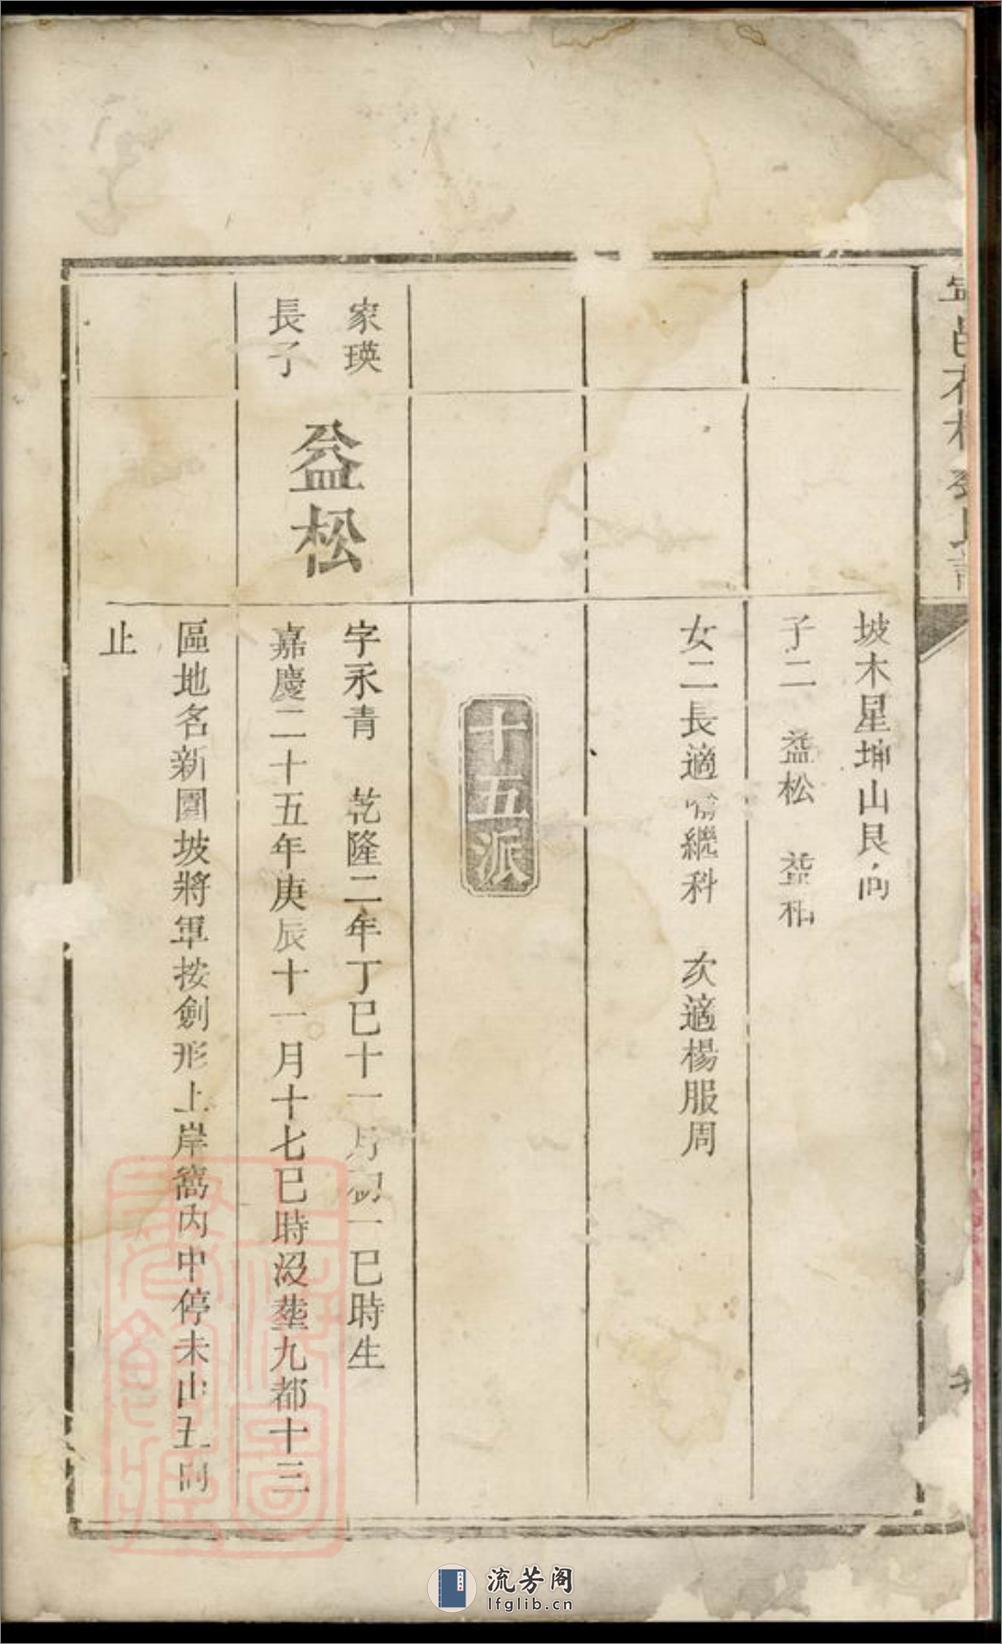 坡木星坤山艮向
子二　益松　益柏
女二長適喻繼科　次適楊服周
十五派
家瑛
長子
益松
字永青　乾隆二年丁巳十一月初一巳時生
嘉慶二十五年庚辰十一月十七巳時沒塟九都十三
區地名新圍坡將軍按劍形上岸窩內中停未山丑向
止
流芳阁
lfglib.cn